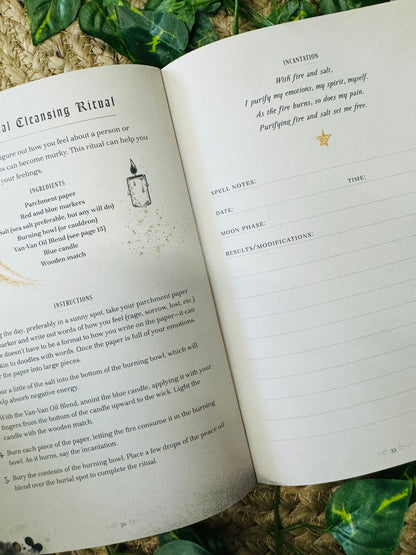 al Cleansing Ritual
igure out how you feel about a person or
s can become murky. This ritual can help you
your feelings.
INGREDIENTS
Parchment paper
Red and blue markers
Salt (sea salt preferable, but any will do)
Burning bowl (or cauldron)
Van-Van Oil Blend (see page 15)
Blue candle
Wooden match
INSTRUCTIONS
g the day, preferably in a sunny spot, take your parchment paper
marker and write out words of how you feel (rage, sorrow, lost, etc.)
e doesn't have to be a format to how you write on the paper—it can
kin to doodles with words. Once the paper is full of your emotions,
the paper into large pieces.
our a little of the salt into the bottom of the burning bowl, which will
elp absorb negative energy.
With the Van-Van Oil Blend, anoint the blue candle, applying it with your
fingers from the bottom of the candle upward to the wick. Light the
candle with the wooden match.
4 Burn each piece of the paper, letting the fire consume it in the burning
bowl. As it burns, say the incantation.
5 Bury the contents of the burning bowl. Place a few drops of the peace oil
blend over the burial spot to complete the ritual.
INCANTATION
With fire and salt,
I purify my emotions, my spirit, myself.
As the fire burns, so does my pain.
Purifying fire and salt set me free.
SPELL NOTES:
DATE: TIME:
MOON PHASE:
RESULTS/MODIFICATIONS:
33